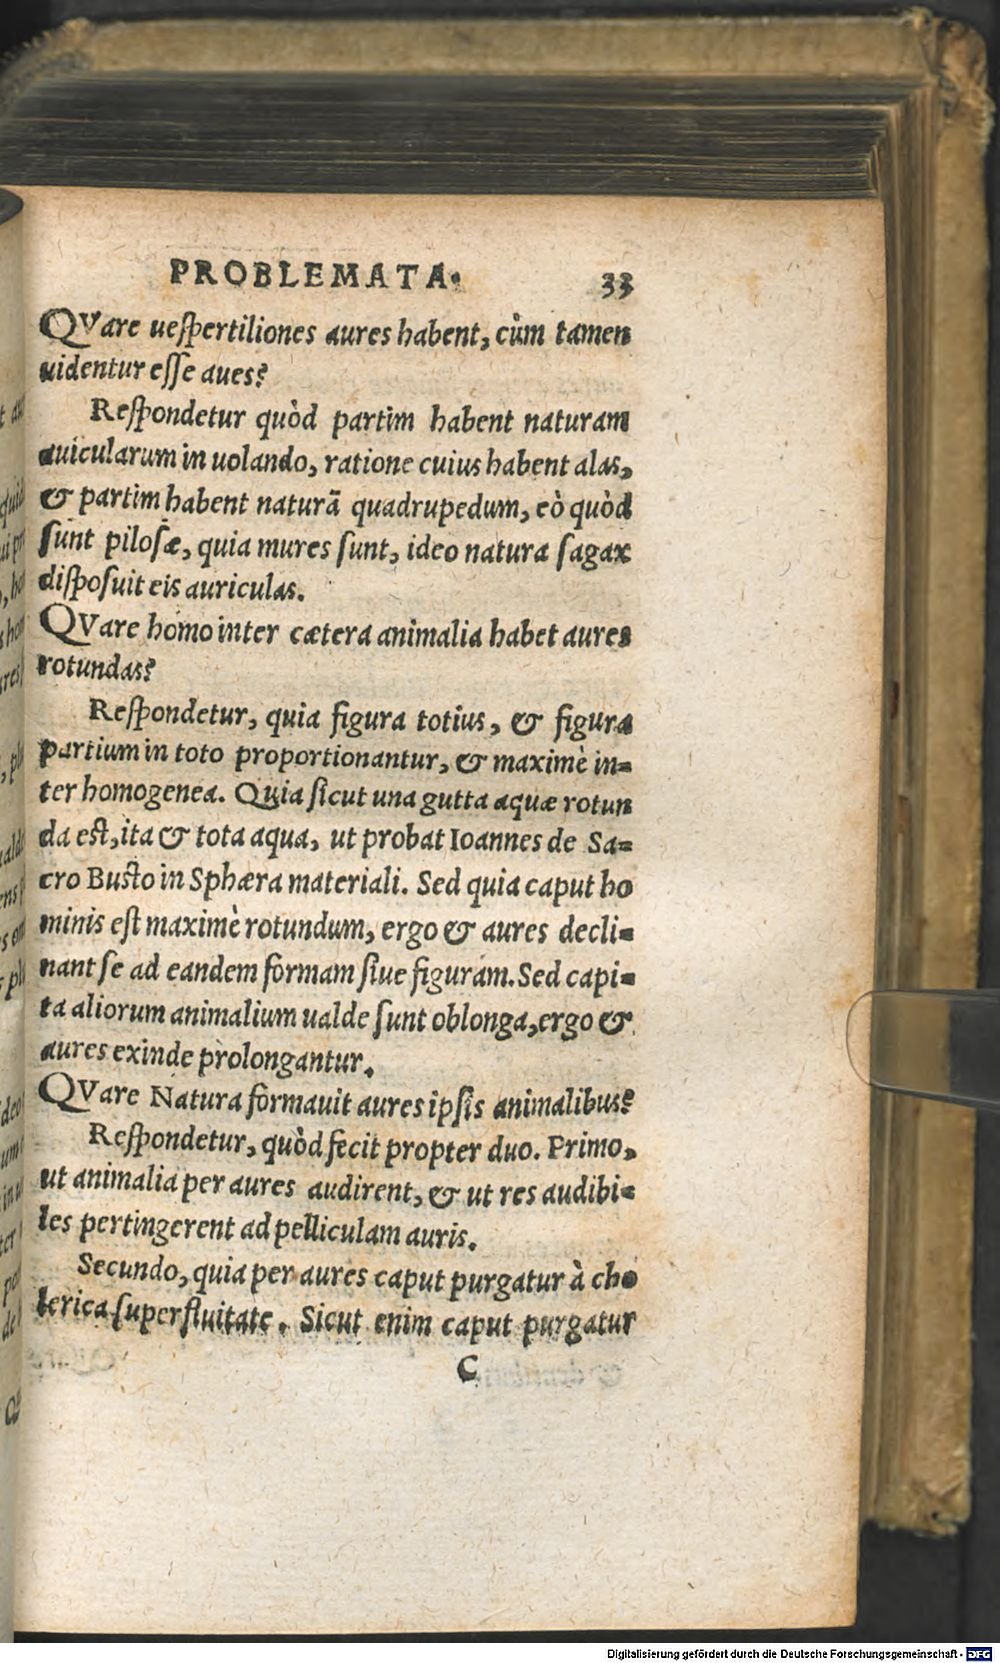 PROBLEMATA. 33
QVare ueſpertiliones aures habent, cùm tamen
uidentur eſſe aues?
Reſpondetur quòd partim habent naturam
auicularum in uolando, ratione cuius habent alas,
& partim habent naturã quadrupedum, eò quòd
ſunt piloſæ, quia mures ſunt, ideo natura ſagax
diſpoſuit eis auriculas.
QVare homo inter cætera animalia habet aures
rotundas?
Reſpondetur, quia figura totius, & figura
partium in toto proportionantur, & maximè in=
ter homogenea. Quia ſicut una gutta aquæ rotun
da eſt, ita & tota aqua, ut probat Ioannes de Sa=
cro Buſto in Sphæra materiali. Sed quia caput ho
minis eſt maximè rotundum, ergo & aures decli=
nant ſe ad eandem formam ſiue figuram. Sed capi=
ta aliorum animalium ualde ſunt oblonga, ergo &
aures exinde prolongantur.
QVare Natura formauit aures ipſis animalibus?
Reſpondetur, quòd fecit propter duo. Primo,
ut animalia per aures audirent, & ut res audibi=
les pertingerent ad pelliculam auris.
Secundo, quia per aures caput purgatur à cho
lerica ſuperfluitate. Sicut enim caput purgatur
C
Digitalisierung gefördert durch die Deutsche Forschungsgemeinschaft - DFG